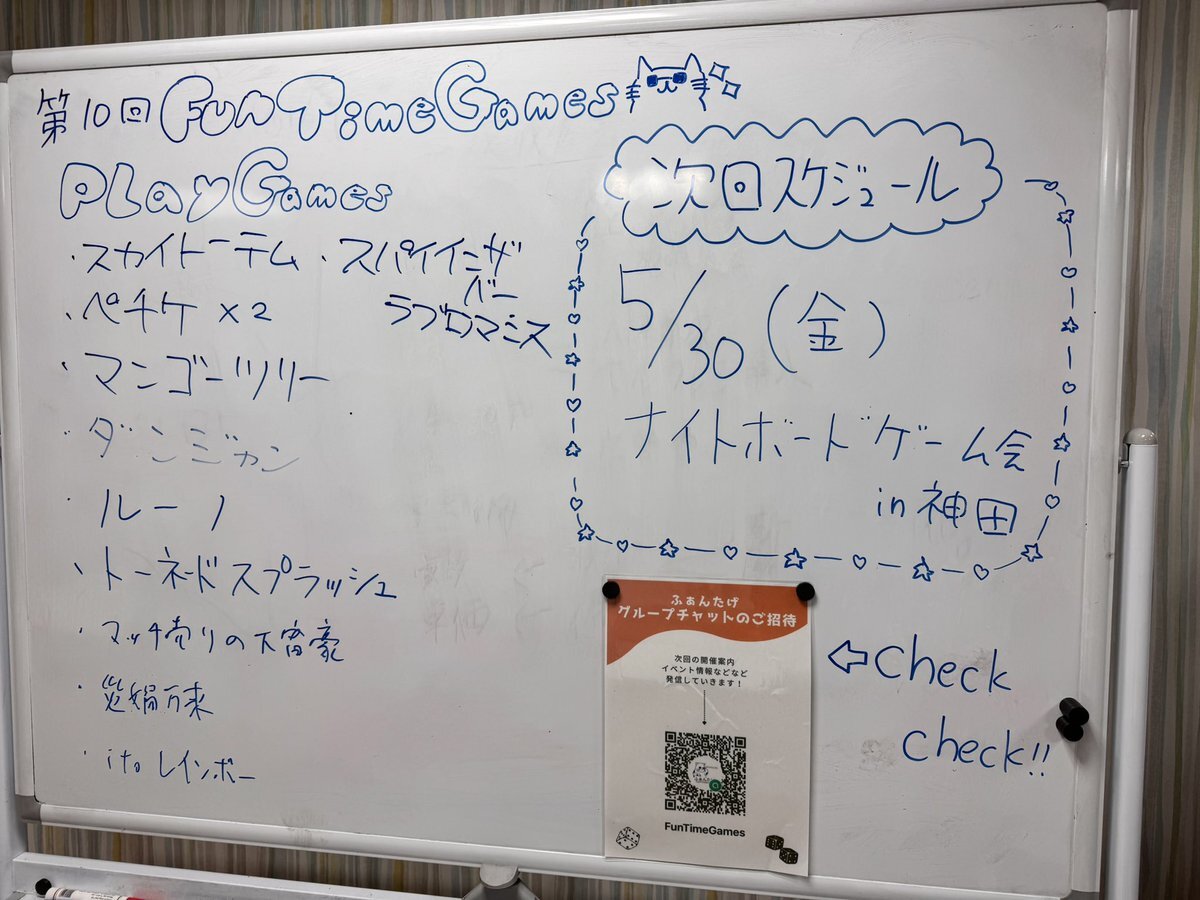 第10回 Fun Time Games
PLay Games
・スカイトーテム
・ペチケ x2
・マンゴーツリー
・ダンジカン
・ルーノ
・トーネードスプラッシュ
・マッチ売りの大富豪
・災媧万来
・ito レインボー
・スパイインザ
バー
ラブロマミス
次回スケジュール
5/30(金)
ナイトボードゲーム会
in 神田
ふぁんたげ
グループチャットのご招待
次回の開催案内
イベント情報などなど
発信していきます!
FunTimeGames
⇦check
check!!